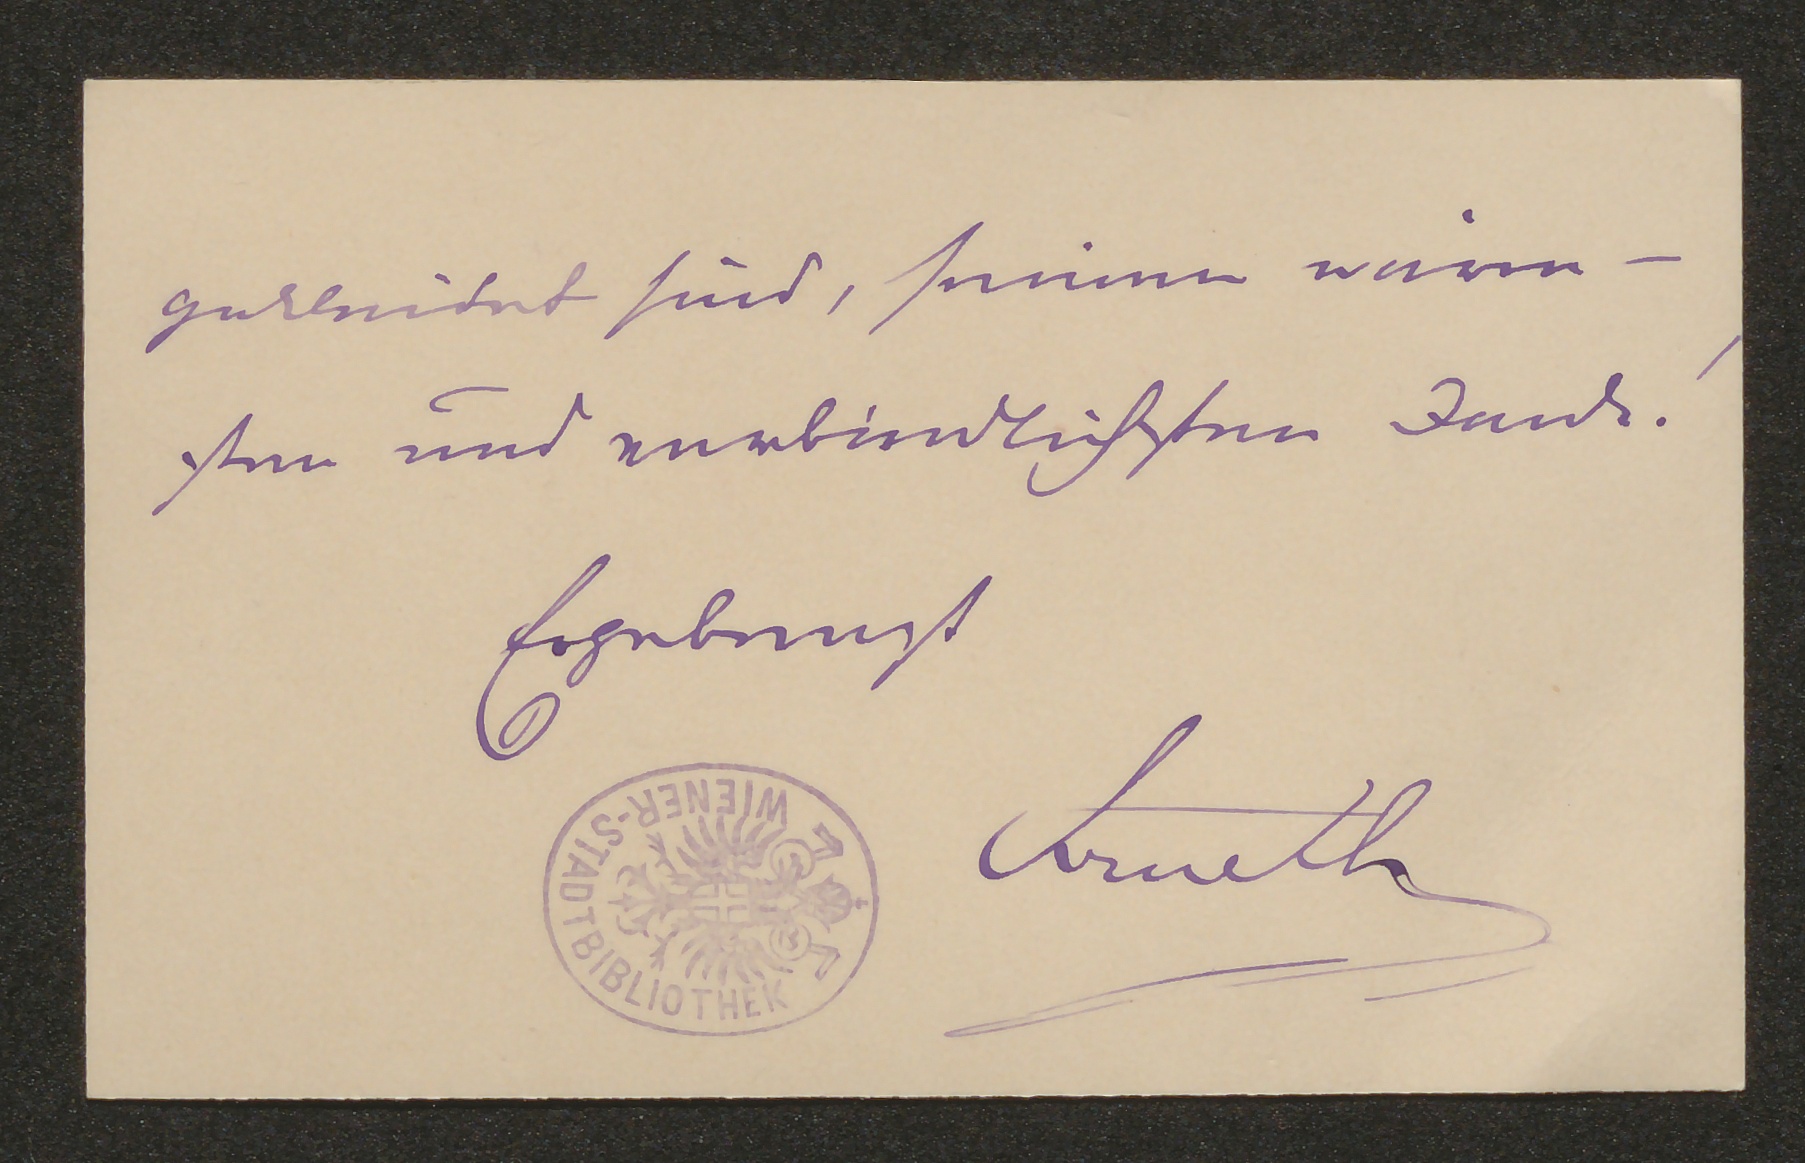 gekleidet sind, seinen wärm-
sten und verbindlichsten Dank!
Ergebenst
Arneth
WIENER-STADTBIBLIOTHEK